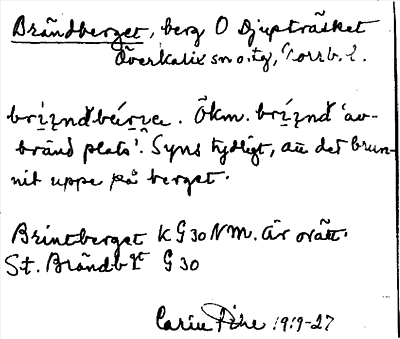 Brändberget, berg O Djupträsket
Överkalix sn o. tg, Norrb. l.
Ökm. 'av-
bränd plats'. Syns tydligt, att det brun-
nit uppe på berget.
Brintberget K G30 NM. är orätt.
St. Brändbgt G 30
Carin Pihl 1919-27